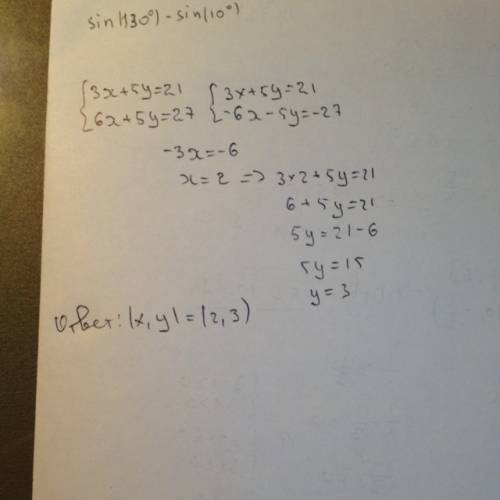 sin(130°) - sin(10°)
{3x+5y=21 {3x+5y=21
{6x+5y=27 {-6x-5y=-27
-3x=-6
x=2 => 3×2+5y=21
6+5y=21
5y=21-6
5y=15
y=3
Ответ: (x,y)=(2,3)